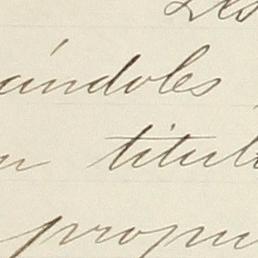 ándoles
n titul
propu